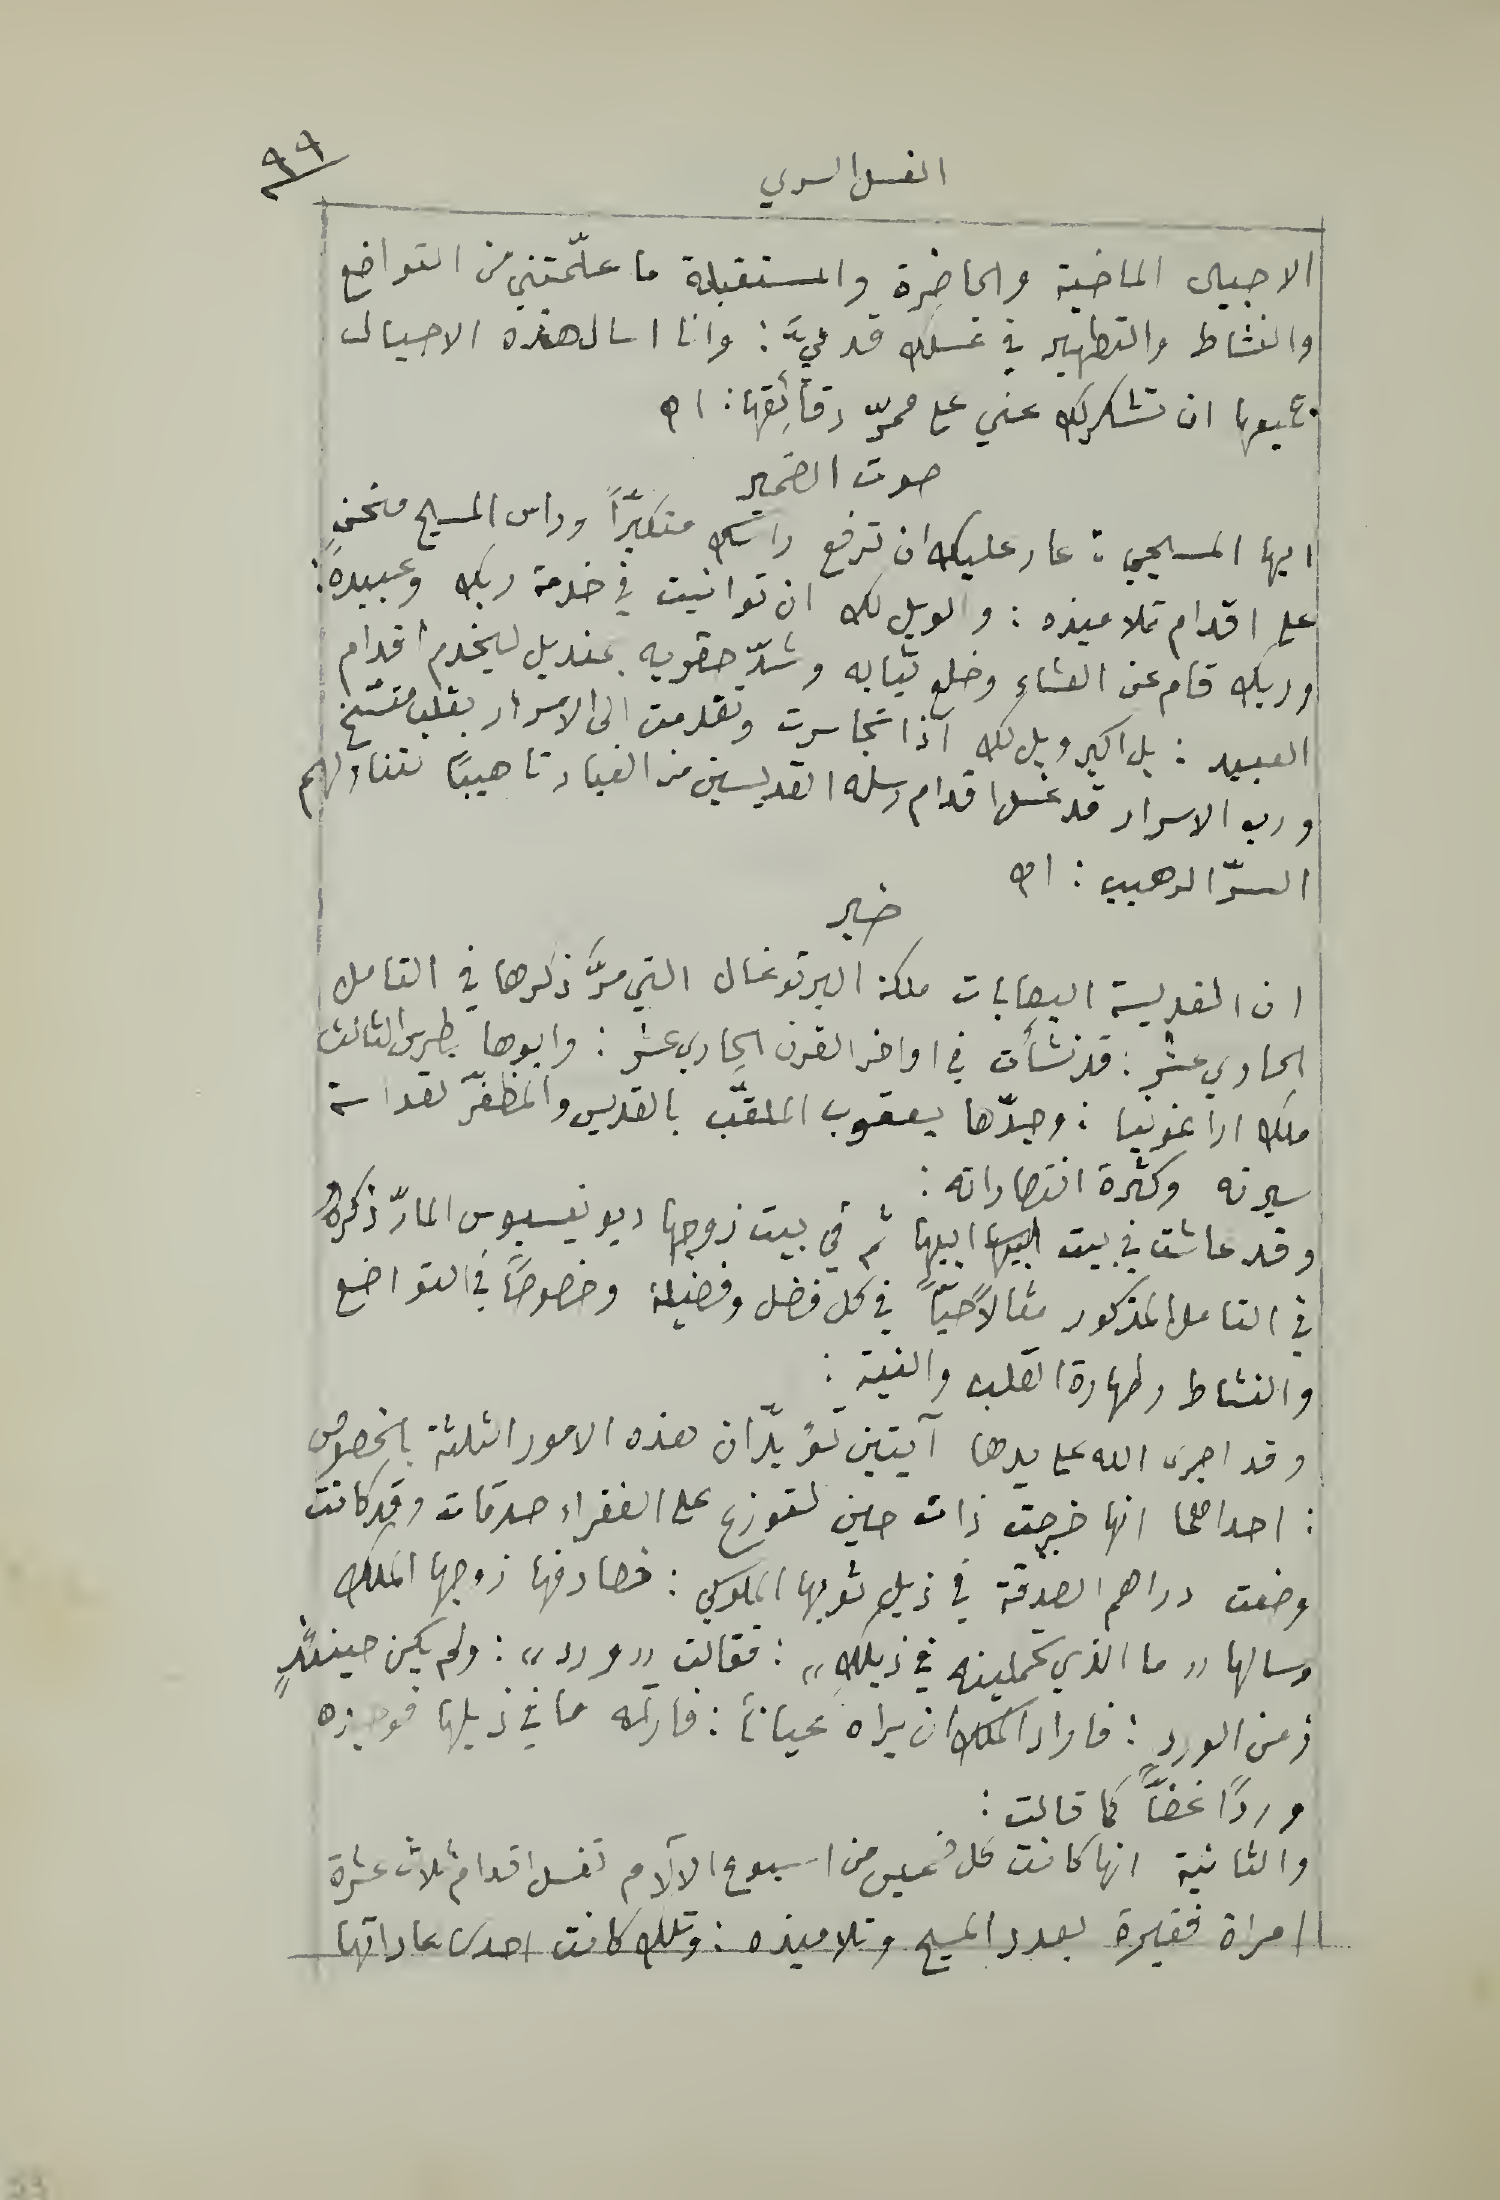 ٩٩
الغسل السري
الاجيال الماضية والحاضرة والمستقبلة ما علّمتني من التواضع
والنشاط والتطهير في غسلك قدميَّ : وانا اسال هذه الاجيال
جميعها ان تشكرلك عني على ممرّ دقائقها : اه
صوت الضمير
ايها المسيحي : عار عليك ان ترفع راسك متكبّراً وراس المسيح منحنٍ
على اقدام تلاميذه : والويل لك ان توانيت في خدمة ربك وعبيده :
وربك قام عن العشاء وخلع ثيابه وشدّ حقويه بمنديل ليخدم اقدام
العبيد : بل اكبر ويل لك اذا تجاسرت وتقدمت الى الاسرار بقلب متسّخ
ورب الاسرار قد غسل اقدام رسله القديسين من الغبار تاهيبًا لتناولهم
السرّ الرهيب : اه
خبر
ان القديسة اليصابات ملكة البرتوغال التي مرَّ ذكرها في التامل
الحادي عشر : قد نشأت في اواخر القرن الحادي عشر : وابوها بطرس الثالث
ملك اراغونيا : وجدّها يعقوب الملقّب بالقديس والمظفّر لقداسة
سيرته وكثرة انتصاراته :
وقد عاشت في بيت ابيها ثم في بيت زوجها ديونيسيوس المارّ ذكرهُ
في التامل المذكور مثالاً حيّاً في كل فضل وفضيلة وخصوصًا في التواضع
والنشاط وطهارة القلب والنية :
وقد اجرى الله على يدها آيتين تؤيدّان هذه الامور الثلثة بالخصوص
: احداهما انها خرجت ذات حين لتوزع على الفقراء صدقات وقد كانت
وضعت دراهم الصدقة في ذيل ثوبها الملوكي : فصادفها زوجها الملك
وسالها " ما الذي تحملينه في ذيلكِ " : فقالت " ورد " : ولم يكن حينئذٍ
زمن الورد : فاراد الملك ان يراه عيانًا : فارته ما في ذيلها فوجده
وردًا غضّاً كما قالت :
والثانية انها كانت كل خميس من اسبوع الآلام تغسل اقدام ثلاث عشرة
امراة فقيرة بعدد المسيح وتلاميذه : وتلك كانت احدى عاداتها